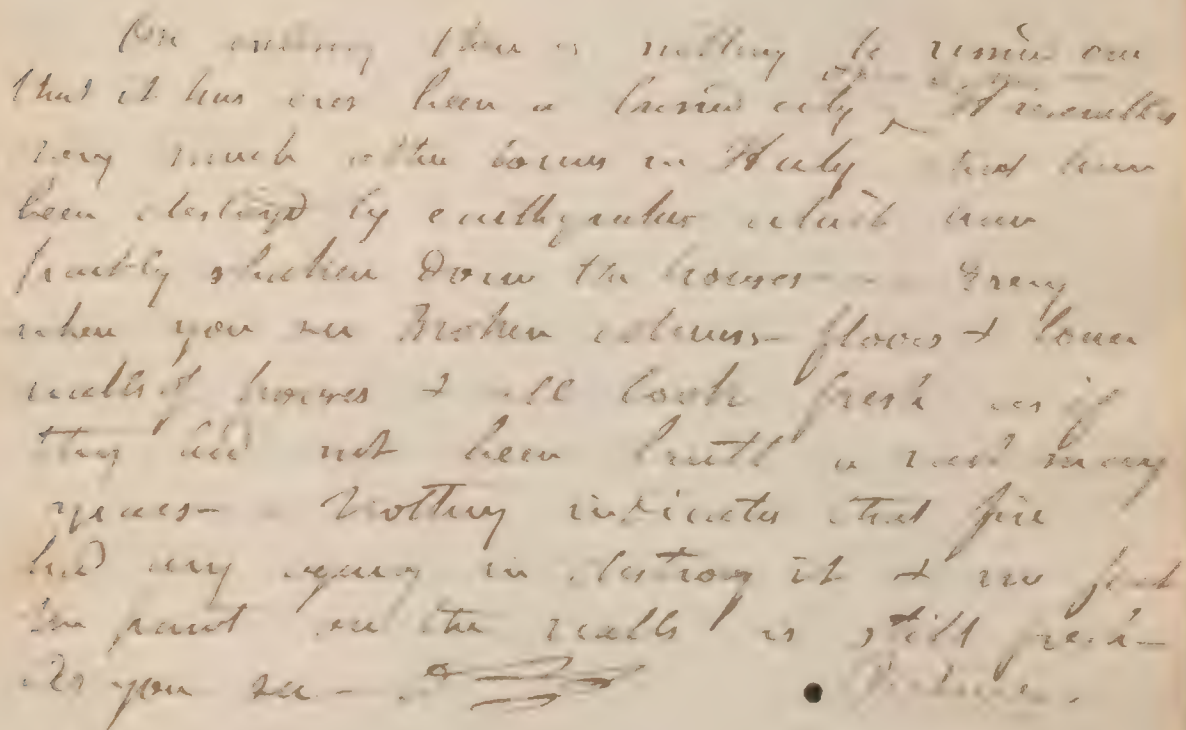 On entering there is nothing to remind one
that it has ever been a buried city It resembles
very much other towns in Italy that have
been destroyed by earthquakes which have
partly shaken down the houses
when you see Broken columns floors & lower
walls of houses & all look fresh as if
they had not been built a great many
years Nothing indicates that fire
had any agency in destroying it & in fact
the paint on the walls is still fresh
As you see